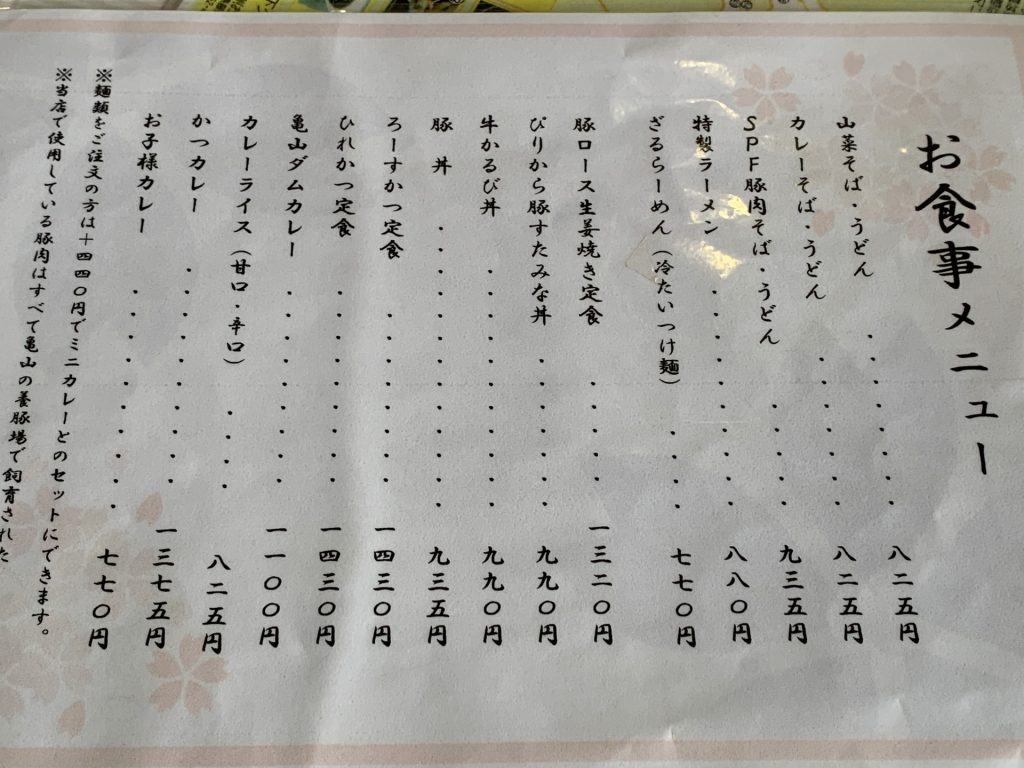 お食事メニュー
山菜そば・うどん ・・・・・・ 八二五円
カレーそば・うどん ・・・・・ 八二五円
ＳＰＦ豚肉そば・うどん ・・・・ 九三五円
特製ラーメン ・・・・・・・ 八八〇円
ざるらーめん（冷たいつけ麺） ・・・ 七七〇円
豚ロース生姜焼き定食 ・・・・・ 一三二〇円
ぴりから豚すたみな丼 ・・・・・ 九九〇円
牛かるび丼 ・・・・・・・・ 九九〇円
豚　丼 ・・・・・・・・・ 九三五円
ろーすかつ定食 ・・・・・・ 一四三〇円
ひれかつ定食 ・・・・・・・ 一四三〇円
亀山ダムカレー ・・・・・・ 一一〇〇円
カレーライス（甘口・辛口） ・・・・ 八二五円
かつカレー ・・・・・・・ 一三七五円
お子様カレー ・・・・・・・ 七七〇円
※麺類をご注文の方は＋四四〇円でミニカレーとのセットにできます。
※当店で使用している豚肉はすべて亀山の養豚場で飼育された